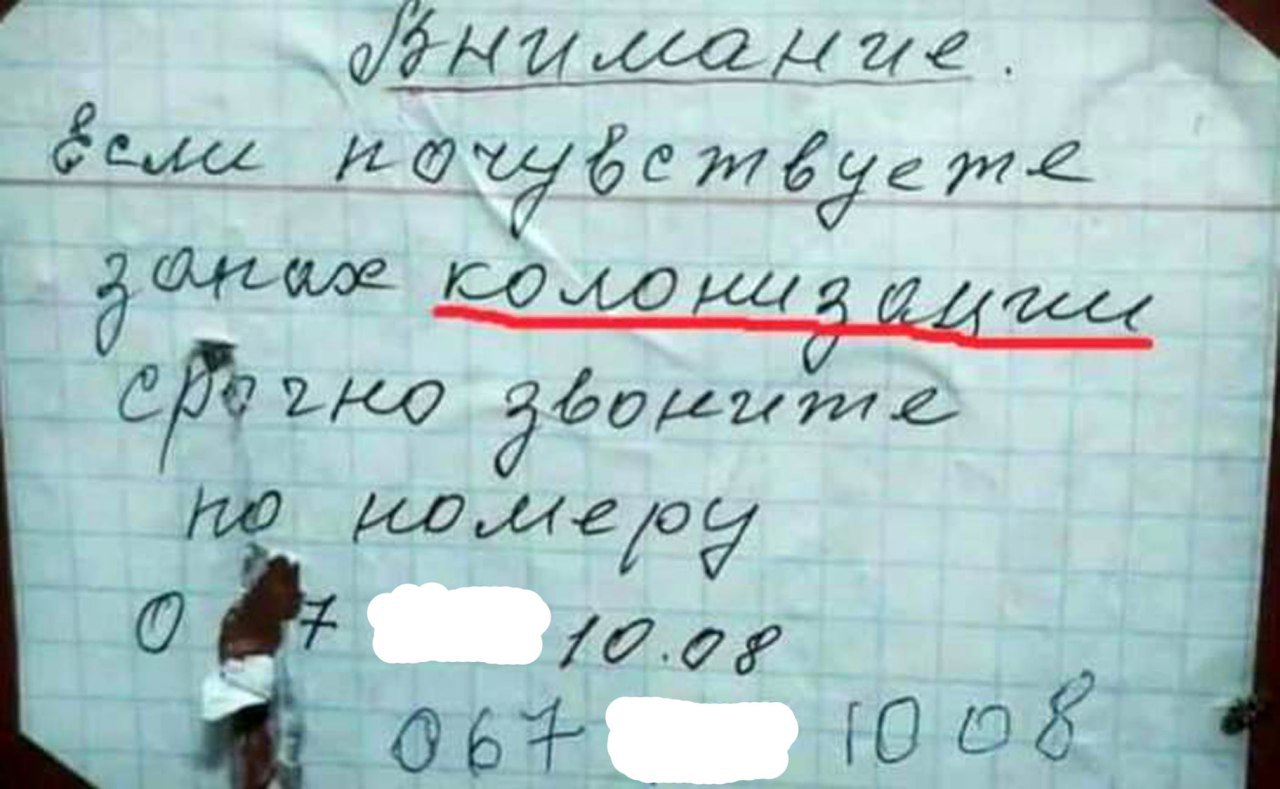 Внимание.
Если почувствуете
запах колонизации
срочно звоните
по номеру
0 7 10.08
067 1008